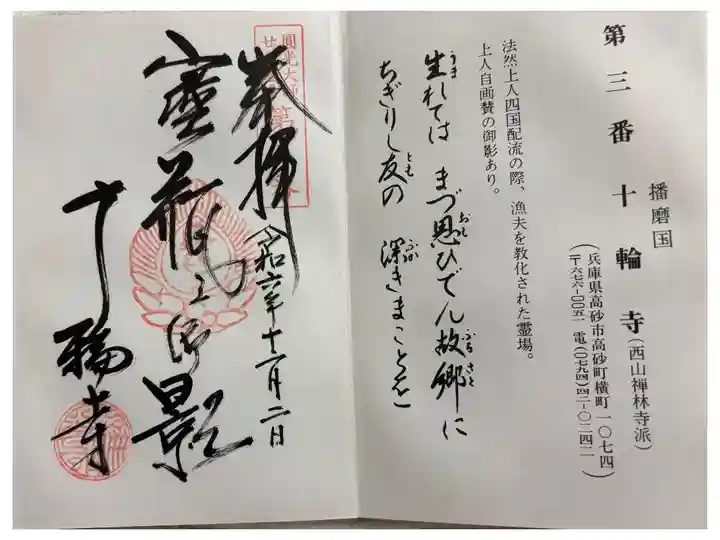 播磨国
第三番十輪寺(西山禅林寺派)
(兵庫県高砂市高砂町横町一〇七四
〒六七六-〇〇五一 電(〇七九四)四二-〇二四二)
法然上人四国配流の際、漁夫を教化された霊場。
上人自画賛の御影あり。
生れては まづ思ひでん故郷に
ちぎりし友の 深きまことを
圓光大師
第
奉拝 令和六年十一月二日
御影
十輪寺